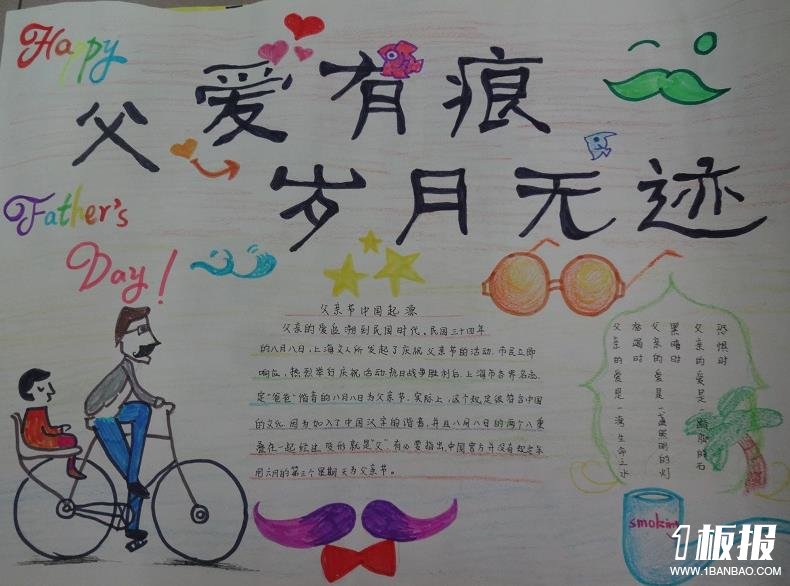 Happy
父爱有痕
岁月无迹
Father's
Day!
父亲节中国起源
父亲的爱追溯到民国时代。民国三十四年
的八月八日,上海文人所发起了庆祝父亲节的活动.市民立即
响应,热烈举行庆祝活动.抗日战争胜利后.上海市各界名流
定"爸爸"谐音的八月八日为父亲节.实际上,这个规定很符合中国
的文化.因为加入了中国汉字的谐音,并且八月八日的两个八重
叠在一起
就是"父".有必要指出,中国官方并没有规定采
用六月的第三个星期天为父亲节。
恐惧时
父亲的爱是一踏脚石
黑暗时
父亲的爱是一盏照明的灯
枯竭时
父亲的爱是一湾生命之水
smoking
1板报
WWW.1BANBAO.COM